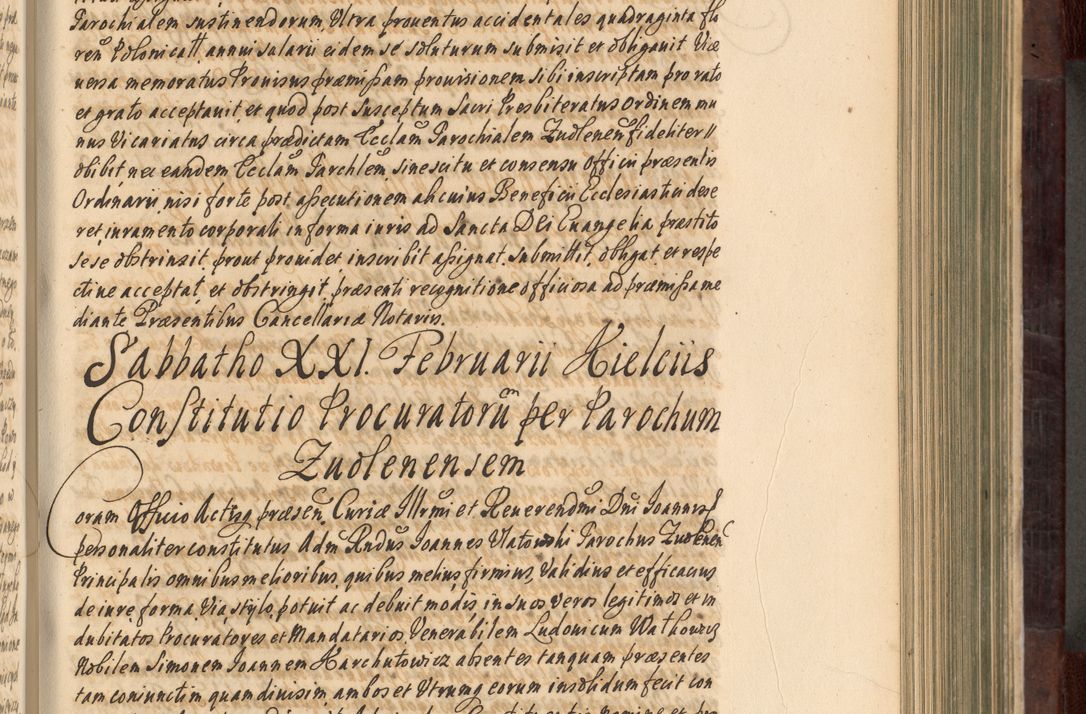 Parochialem sustinendorum, Ultra prouentus accidentales quadraginta flo
ren Polonicall annui salarii eidem se soluturum submisit et obligauit Vice
uersa memoratus Prouisus præmissam prouisionem sibi inscriptam pro rato
et grato acceptauit, et quod post susceptum Sacri Presbiteratus Ordinem mu
nus Vicariatus circa prædictam Ecclam Parochialem Zudlenen fideliter
obibit nec eandem Ecclam Parchlem, sine scitu et consensu Officii præsentis
Ordinarii, nisi forte post assecutionem alicuius Beneficii Ecclesiastici dese
ret, iuramento corporali in forma iuris ad Sancta DEi Euangelia præstito
sese obstrinxit, prout prouidet inscribit assignat, submittit, obligat et respe
ctiue acceptat, et obstringit, præsenti recognitione officiosa ad præmissa me
diante Præsentibus Cancellariæ Notariis.
Sabbatho XXI. Februarii Kielciis
Constitutio Procuratorum per Parochum
Zudlenensem
Coram Officio Actisq præsen Curiæ Illrmi et Reuerendmi Dni Joannis
personaliter constitutus Adm Rndus Joannes Parochus Zudlenen
Principalis omnibus melioribus, quibus melius, firmius, Validius et efficacius
de iure, forma, Via, stylo, potuit ac debuit modis, in suos Veros legitimos et in
dubitatos Procuratores et Mandatarios Venerabilem Ludouicum
Nobilem Simonem Joannem Harchutowicz absentes tanquam præsentes
tam coniunctim quam diuisim ambos et Utrumq eorum insolidum fecit con